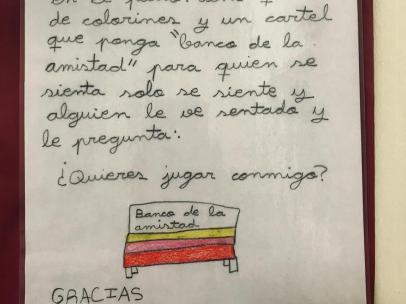 de colorines y un cartel
que ponga "banco de la
amistad" para quien se
sienta solo se siente y
alguien le ve sentado y
le pregunta:
¿Quieres jugar conmigo?
Banco de la
amistad
GRACIAS